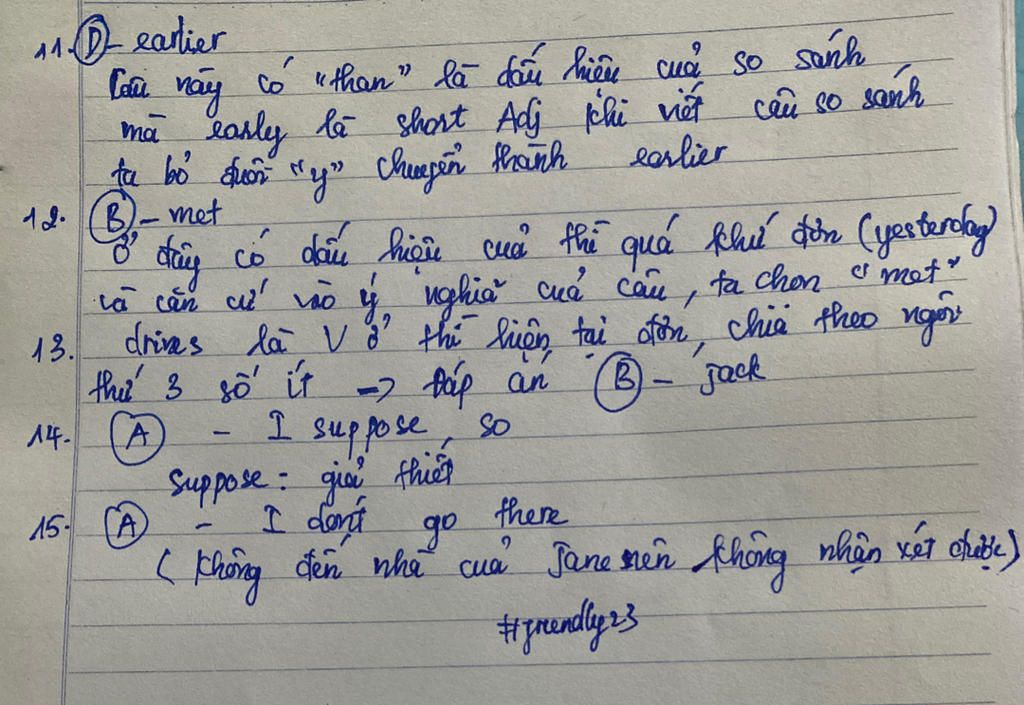 11. D - earlier
Câu này có "than" là dấu hiệu cuả so sánh
mà early là short Adj khi viết câu so sánh
ta bỏ đuôi "y" chuyển thành earlier
12. B - met
Ở đây có dấu hiệu cuả thì quá khứ đơn (yesterday)
và căn cứ vào ý nghiã cuả câu, ta chọn "met"
13. drives là V ở thì hiện tại đơn, chia theo ngôi
thứ 3 số ít -> Đáp án B - jack
14. A - I suppose, so
suppose: giả thiết
15. A - I don't go there
(không đến nhà cuả Jane nên không nhận xét được)